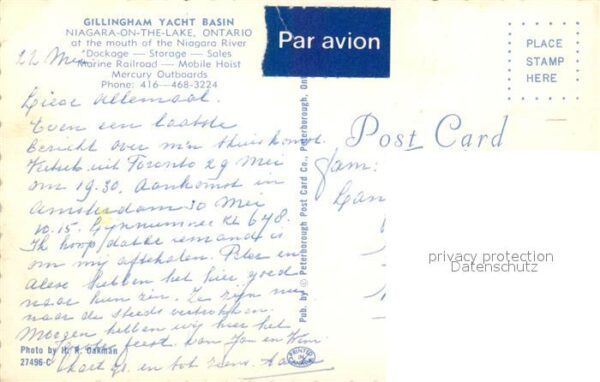 GILLINGHAM YACHT BASIN
NIAGARA-ON-THE-LAKE, ONTARIO
at the mouth of the Niagara River
Dockage — Storage — Sales
Marine Railroad — Mobile Hoist
Mercury Outboards
Phone: 416—468-3224
Par avion
PLACE
STAMP
HERE
Post Card
22 Mei
Lieve Allemaal.
Even een laatste
bericht over m'n thuiskomst.
Vertrek uit Toronto 29 Mei
om 19.30. Aankomst in
Amsterdam 30 Mei
10.15. KL 648.
Ik hoop dat er iemand is
om mij af te halen. en
hebben het hier goed
naar hun zin. Ze zijn nu
naar de stad vertrokken
Morgen hebben wij hier het
feest van Jan en Wim
en tot ziens.
Fam:
Pub. by © Peterborough Post Card Co., Peterborough, Ont
PRINTED IN
Photo by H. R. Oakman
27496-C
privacy protection
Datenschutz